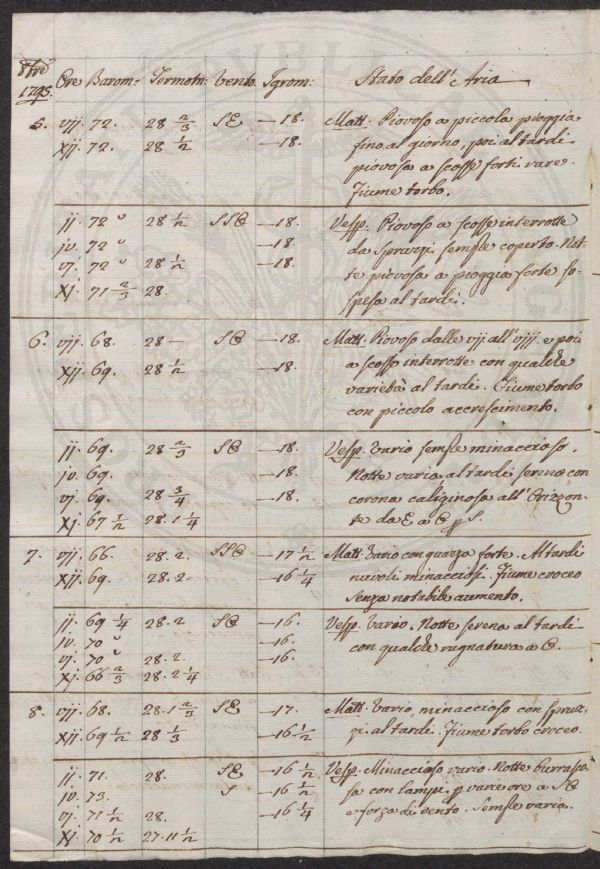 8bre
1795 Ore Barom: Termom: Vento Igrom: Stato dell'Aria
5. vij. 72. 28 2/3 SE —18. Matt. Piovoso a piccola pioggia
xij. 72. 28 1/2 —18. fino al giorno, poi al tardi
piovoso a scosse forti vare.
Fiume torbo.
ij. 72 " 28 1/2 SSO —18. Vesp. Piovoso a scosse interrotte
iv. 72 " —18. da spruzzi semple coperto. Not-
vj. 72 " 28 1/2 —18. te piovosa a pioggia forte so-
xj. 71 2/3 28. spesa al tardi.
6. vij. 68. 28 — SO —18. Matt. Piovoso dalle vij. all'viij. e poi
xij. 69. 28 1/2 —18. a scosse interrotte con qualche
varietà al tardi. Fiume torbo
con piccolo accrescimento.
ij. 69. 28 2/3 SO —18. Vesp. Vario semple minaccioso.
iv. 69. —18. Notte varia, al tardi sereno con
vj. 69. 28 3/4 —18. corona caliginosa all'Orizzon-
xj. 67 1/2 28.1 1/4 te da E a O p S.
7. vij. 66. 28.2. SSO —17 1/2 Matt. Vario con guazza forte. Al tardi
xij. 69. 28.2. —16 1/4 nuvoli minacciosi. Fiume croceo
senza notabile aumento.
ij. 69 1/4 28.2 SO —16. Vesp. Vario. Notte serena al tardi
iv. 70 " —16. con qualche ragnatura a O.
vj. 70 " 28.2. —16.
xj. 66 2/3 28.2 1/4
8. vij. 68. 28.1 2/3 SE —17. Matt. Vario, minaccioso con spruz-
xij. 69 1/2 28 1/3 —16 1/2 zi al tardi. Fiume torbo croceo.
ij. 71. 28. SE —16 1/2 Vesp. Minaccioso vario. Notte burrasco-
iv. 73. S —16 1/2 sa con lampi p varie ore a SO
vj. 71 1/2 28. —16 1/4 e forza di vento. Semple varia.
xj. 70 1/2 27.11 1/2